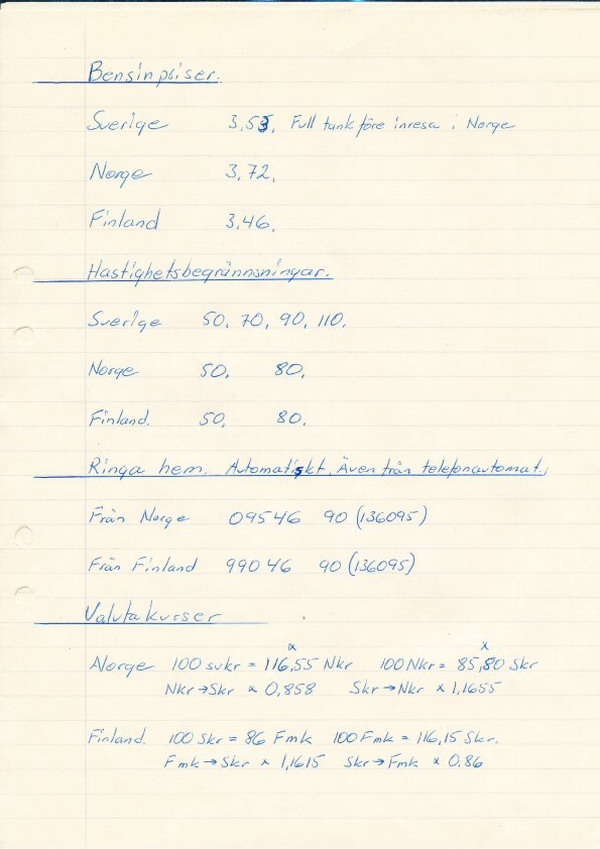 Bensinpriser.
Sverige 3,53, Full tank före inresa i Norge
Norge 3,72,
Finland 3,46,
Hastighetsbegrännsningar.
Sverige 50, 70, 90, 110,
Norge 50, 80,
Finland. 50, 80,
Ringa hem. Automatiskt, Även från telefonautomat.
Från Norge 09546 90 (136095)
Från Finland 99046 90 (136095)
Valutakurser
Norge 100 svkr = 116,55 Nkr 100 Nkr = 85,80 Skr
Nkr → Skr × 0,858 Skr → Nkr × 1,1655
Finland. 100 Skr = 86 Fmk 100 Fmk = 116,15 Skr.
Fmk → Skr × 1,1615 Skr → Fmk × 0,86